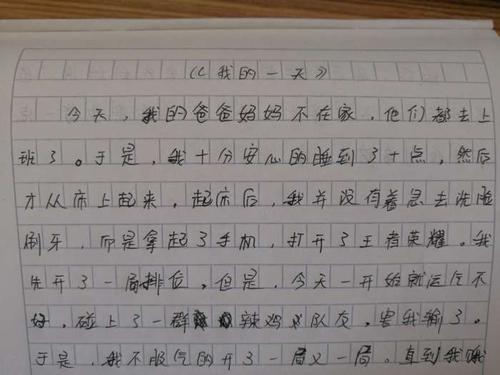 《我的一天》
今天，我的爸爸妈妈不在家，他们都去上
班了。于是，我十分安心的睡到了十点，然后
才从床上起来，起床后，我并没有着急去洗脸
刷牙，而是拿起了手机，打开了王者荣耀。我
先开了一局排位，但是，今天一开始就运气不
好，碰上了一群辣鸡队友，害我输了。
于是，我不服气的开了一局又一局。直到我